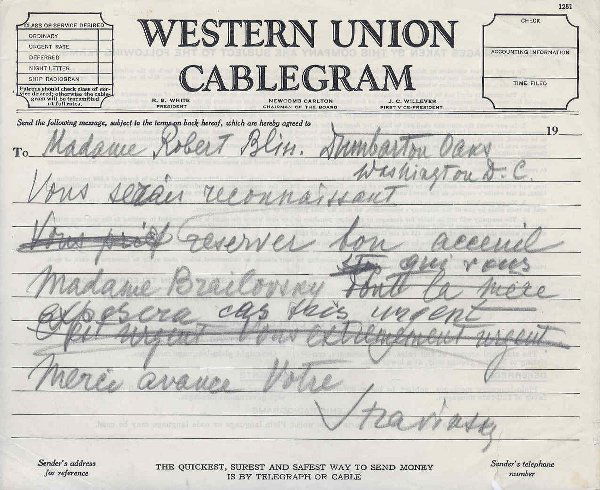 1251
WESTERN UNION
CABLEGRAM
CLASS OF SERVICE DESIRED
ORDINARY
URGENT RATE
DEFERRED
NIGHT LETTER
SHIP RADIOGRAM
Patrons should check class of service desired; otherwise the cablegram will be transmitted as full-rate.
R. B. WHITE
PRESIDENT
NEWCOMB CARLTON
CHAIRMAN OF THE BOARD
J. C. WILLEVER
FIRST VICE-PRESIDENT
CHECK
ACCOUNTING INFORMATION
TIME FILED
Send the following message, subject to the terms on back hereof, which are hereby agreed to
19
To Madame Robert Blin. Dumbarton Oaks
Washington D.C.
Vous serais reconnaissant
Vous prie reserver bon acceuil
qui vous
Madame Brailovsky dont la mère
exposera cas très urgent
est urgent Vous extremement urgent
Merci avance Votre
Stravinsky
Sender's address
for reference
THE QUICKEST, SUREST AND SAFEST WAY TO SEND MONEY
IS BY TELEGRAPH OR CABLE
Sender's telephone
number